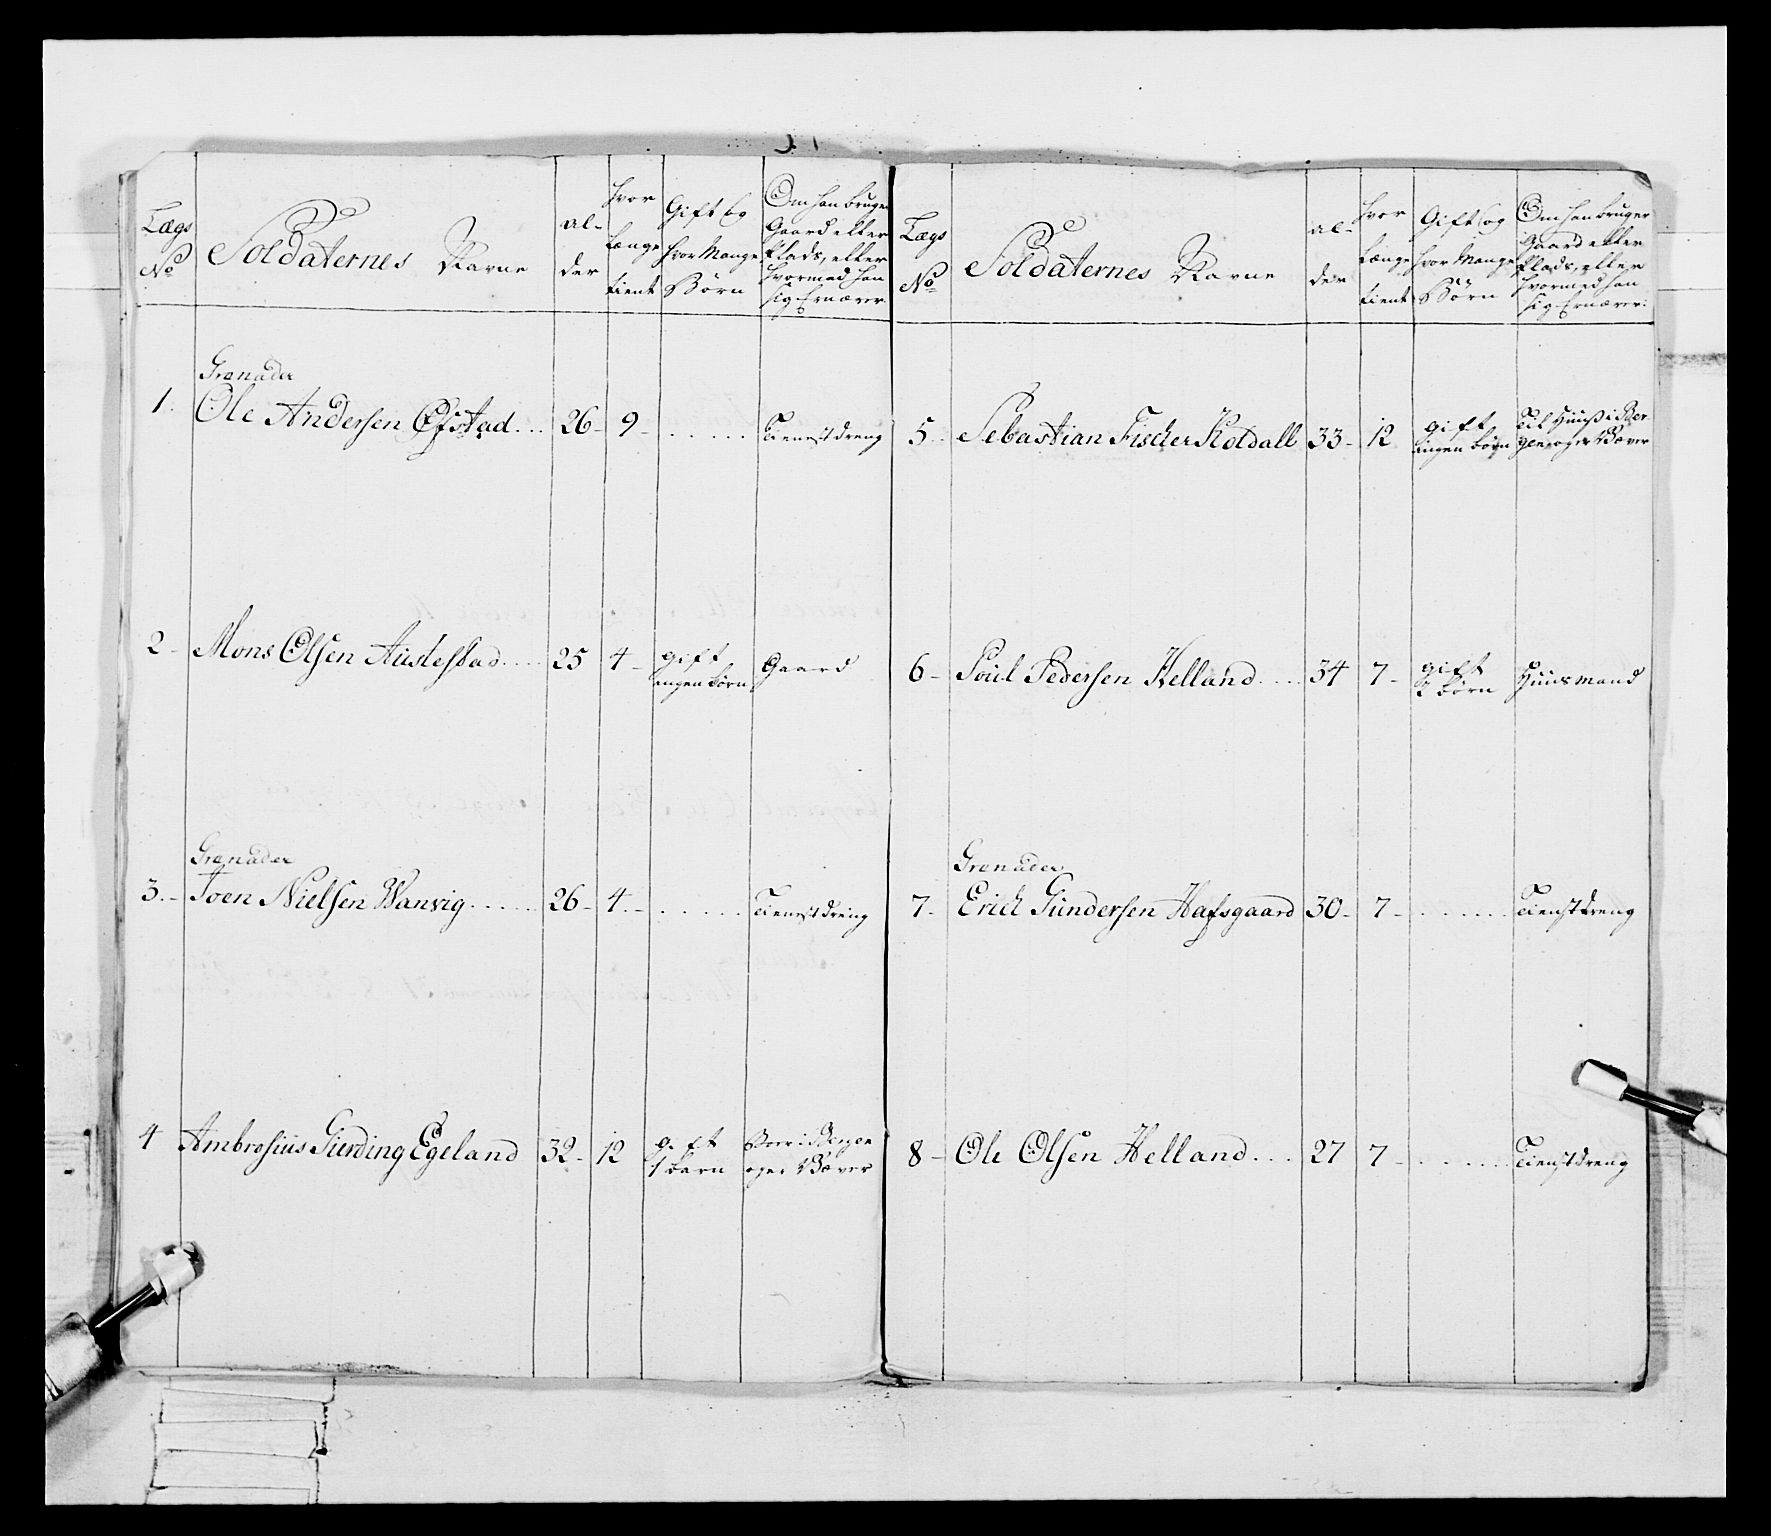 Lægs No
Soldaternes Navne
al-
der
hvor
længe
tient
Gift og
hvor Mange
Børn
Om han bruger
Gaard eller
Plads, eller
hvormed han
sig Ernærer
Grenader
1. Ole Andersen Øfstad... 26- 9- ..... Tienestdreng
2- Mons Olsen Austestad.... 25 4- gift
ingen børn Gaard
Grenader
3.- Joen Nielsen Wansvig...... 26- 4.- ..... Tienestdreng
4 Ambrosius Gierding Egeland 32- 12 gift
1 barn Boer i Bergen
og er Væver
Lægs
No
Soldaternes Navne
al-
der
hvor
længe
tient
Gift og
hvor Mange
Børn
Om han bruger
Gaard eller
Plads, eller
hvormed han
sig Ernærer:
5- Sebastian Fischer Koldall 33- 12 gift
ingen børn Til Huus i Ber-
gen og er Væver
6- Poul Pedersen Helland.... 34 7- gift
2 børn Huusmand
Grenader
7- Erich Gundersen Hafsgaard 30- 7- ...... Tienstdreng
8- Ole Olsen Helland... 27 7- ...... Tienstdreng